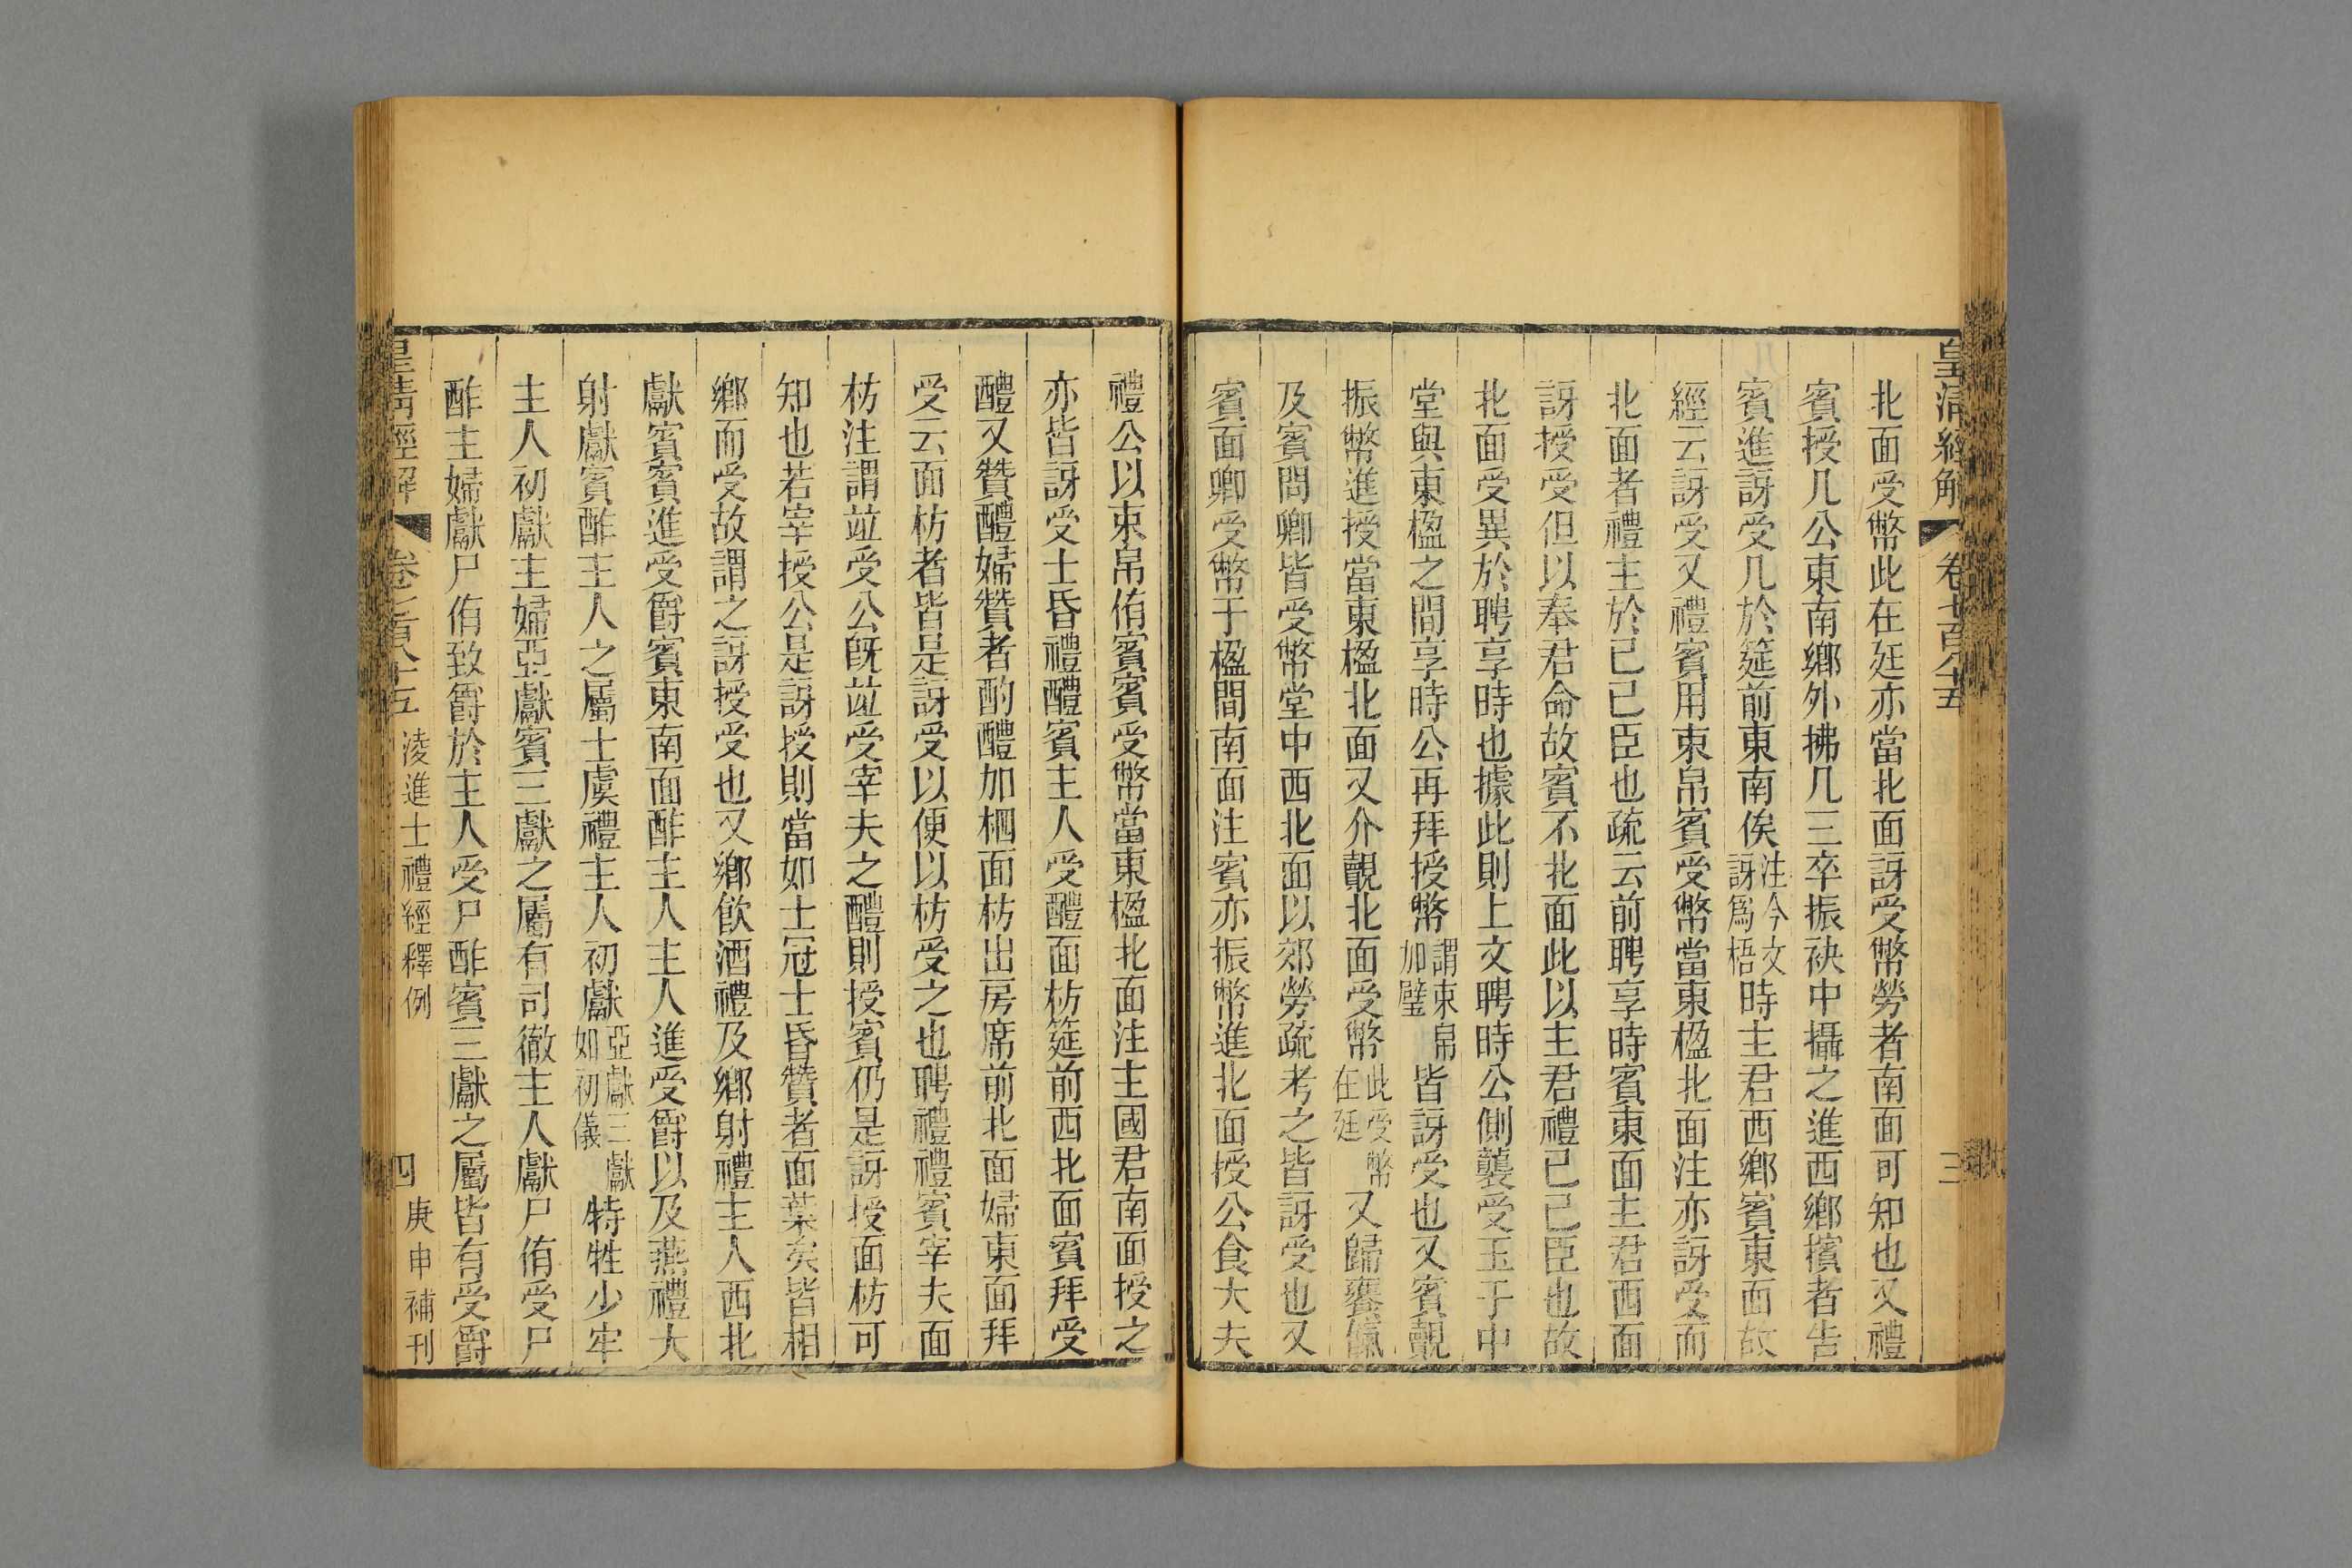 皇清經解 卷七百八十五 三
北面受幣此在廷亦當北面訝受幣勞者南面可知也又禮
賓授几公東南鄉外拂几三卒振袂中攝之進西鄉擯者告
賓進訝受几於筵前東南俟注今文訝爲梧時主君西鄉賓東面故
經云訝受又禮賓用束帛賓受幣當東楹北面注亦訝受而
北面者禮主於己己臣也疏云前聘享時賓東面主君西面
訝授受但以奉君命故賓不北面此以主君禮己己臣也故
北面受異於聘享時也據此則上文聘時公側襲受玉于中
堂與東楹之間享時公再拜授幣謂束帛加璧皆訝受也又賓覿
振幣進授當東楹北面又介覿北面受幣此受幣在廷又歸饔餼
及賓問卿皆受幣堂中西北面以郊勞疏考之皆訝受也又
賓面卿受幣于楹間南面注賓亦振幣進北面授公食大夫
禮公以束帛侑賓賓受幣當東楹北面注主國君南面授之
亦皆訝受士昏禮醴賓主人受醴面枋筵前西北面賓拜受
醴又贊醴婦贊者酌醴加柶面枋出房席前北面婦東面拜
受云面枋者皆是訝受以便以枋受之也聘禮禮賓宰夫面
枋注謂竝受公旣竝受宰夫之醴則授賓仍是訝授面枋可
知也若宰授公是訝授則當如士冠士昏贊者面葉矣皆相
鄉而受故謂之訝授受也又鄉飮酒禮及鄉射禮主人西北
獻賓賓進受爵賓東南面酢主人主人進受爵以及燕禮大
射獻賓酢主人之屬士虞禮主人初獻亞獻三獻如初儀特牲少牢
主人初獻主婦亞獻賓三獻之屬有司徹主人獻尸侑受尸
酢主婦獻尸侑致爵於主人受尸酢賓三獻之屬皆有受爵
皇清經解 卷七百八十五 淩進士禮經釋例 四 庚申補刊